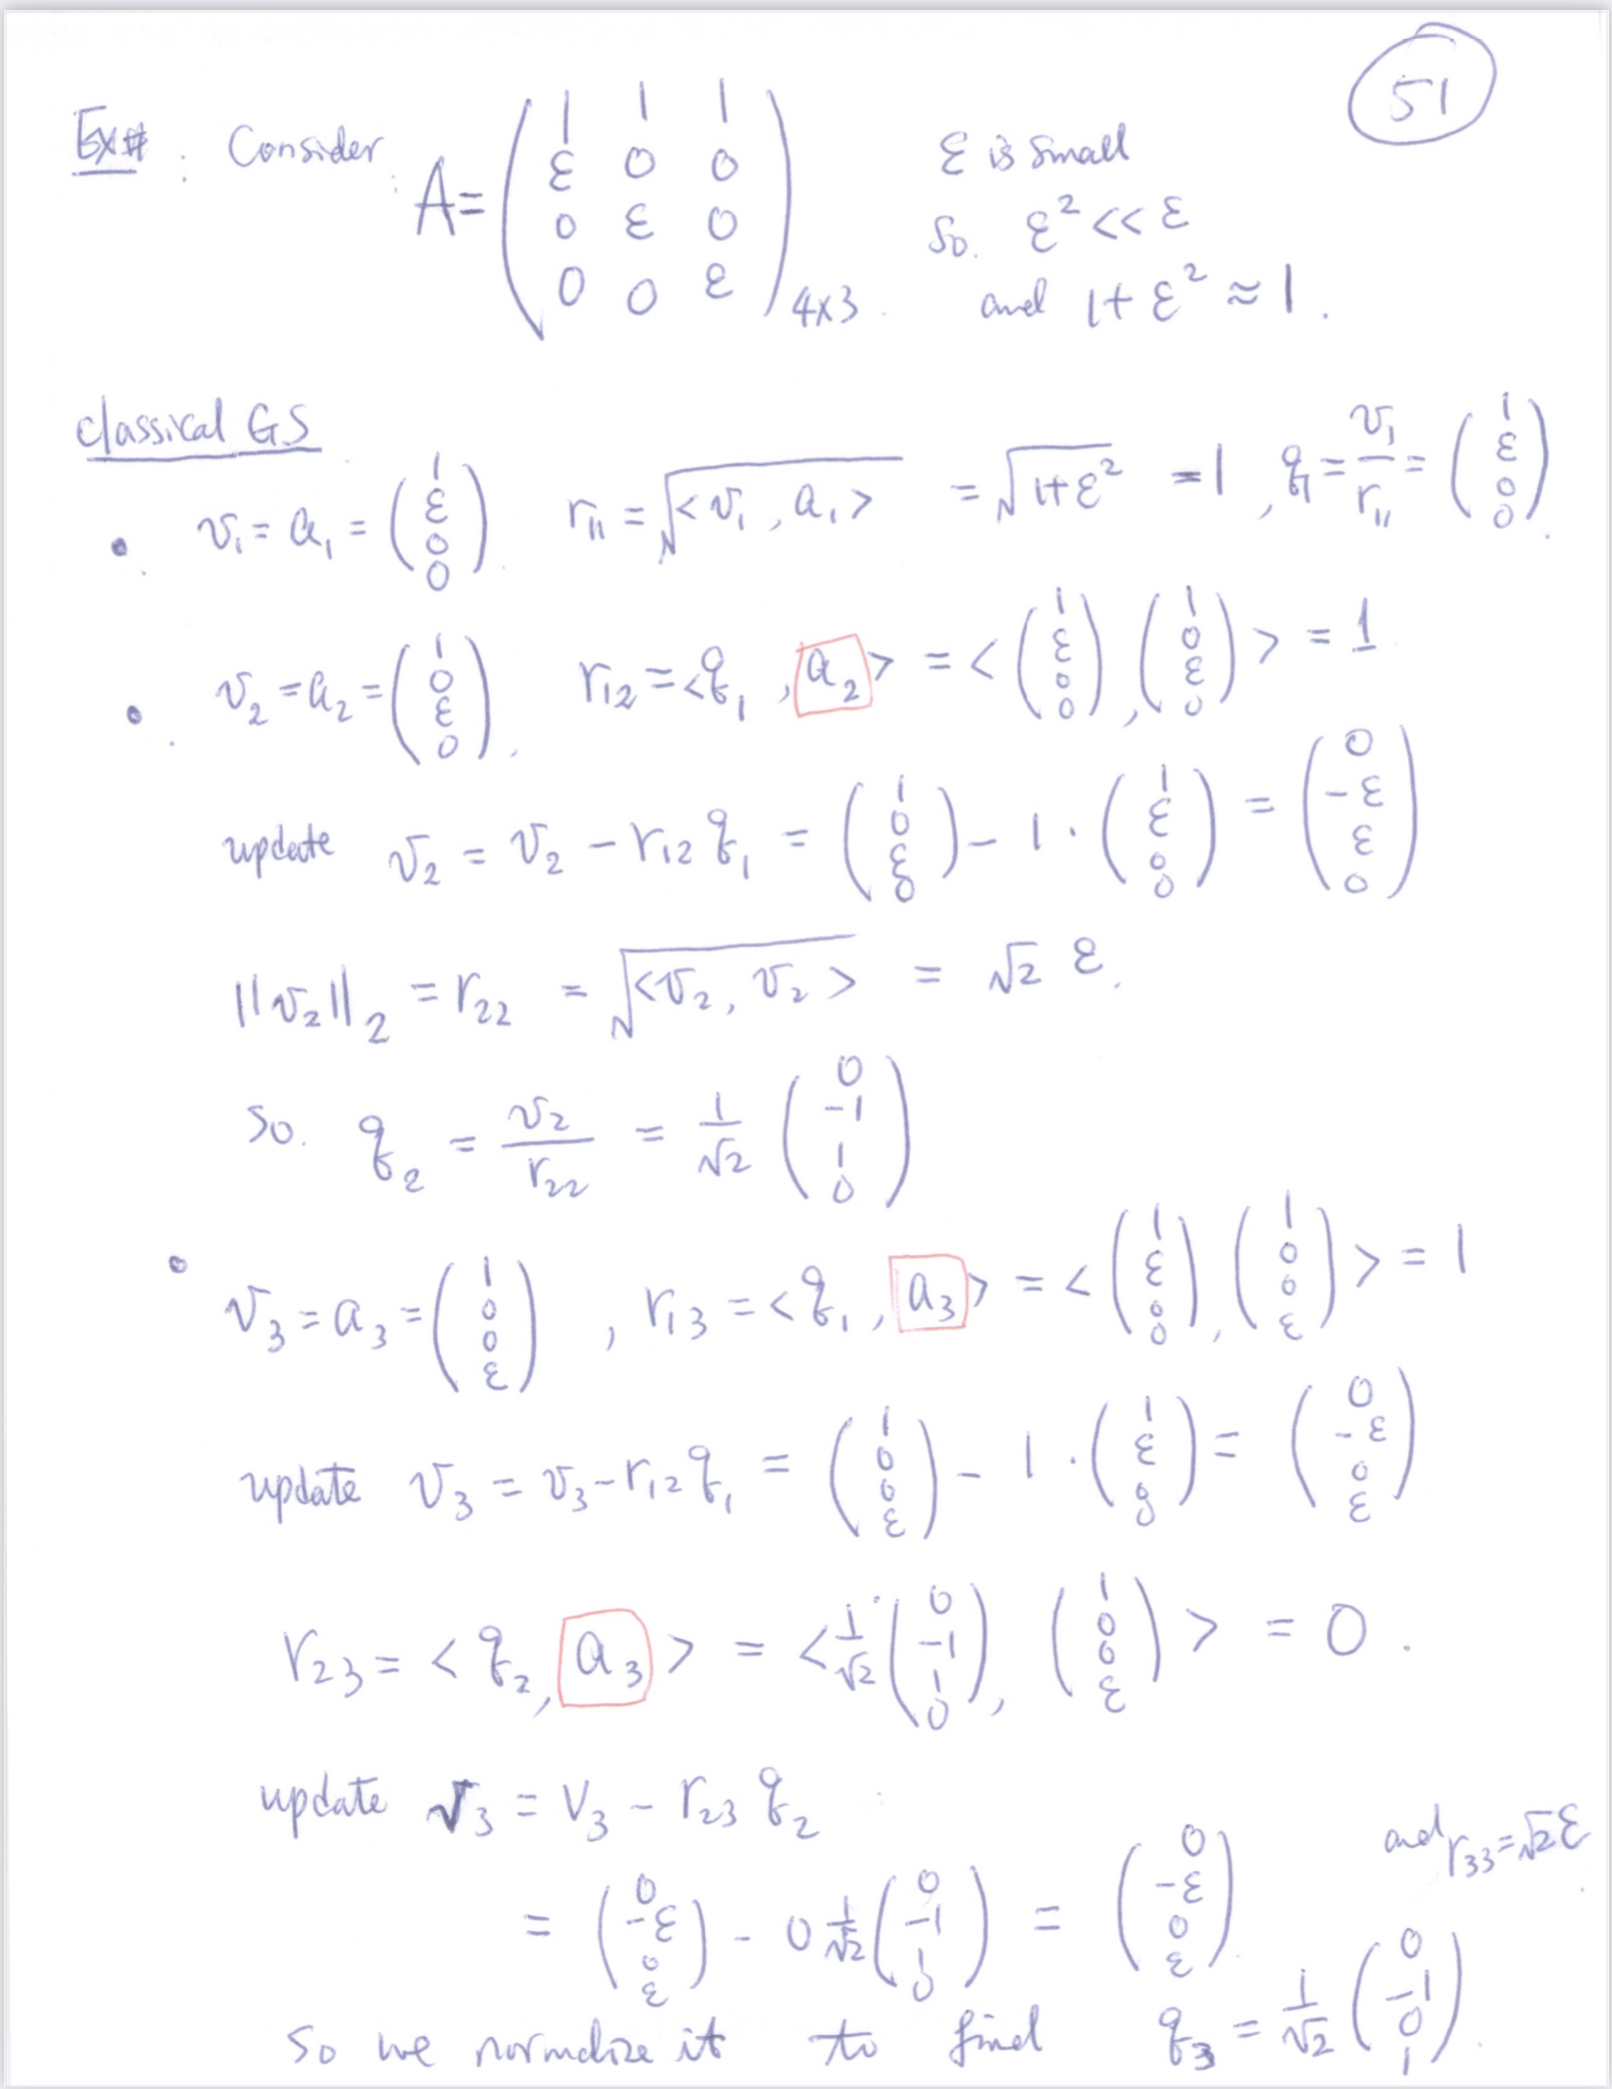 51
Ex#: Consider A = \begin{pmatrix} 1 & 1 & 1 \\ ε & 0 & 0 \\ 0 & ε & 0 \\ 0 & 0 & ε \end{pmatrix}_{4x3}
ε is small
So. ε² << ε
and 1+ε² ≈ 1.
classical GS
• v₁ = a₁ = \begin{pmatrix} 1 \\ ε \\ 0 \\ 0 \end{pmatrix}. r₁₁ = \sqrt{<v₁, a₁>} = \sqrt{1+ε²} = 1, q₁ = \frac{v₁}{r₁₁} = \begin{pmatrix} 1 \\ ε \\ 0 \\ 0 \end{pmatrix}.
• v₂ = a₂ = \begin{pmatrix} 1 \\ 0 \\ ε \\ 0 \end{pmatrix}, r₁₂ = <q₁, a₂> = <\begin{pmatrix} 1 \\ ε \\ 0 \\ 0 \end{pmatrix}, \begin{pmatrix} 1 \\ 0 \\ ε \\ 0 \end{pmatrix}> = 1
update v₂ = v₂ - r₁₂ q₁ = \begin{pmatrix} 1 \\ 0 \\ ε \\ 0 \end{pmatrix} - 1 · \begin{pmatrix} 1 \\ ε \\ 0 \\ 0 \end{pmatrix} = \begin{pmatrix} 0 \\ -ε \\ ε \\ 0 \end{pmatrix}
||v₂||₂ = r₂₂ = \sqrt{<v₂, v₂>} = √2 ε.
So. q₂ = \frac{v₂}{r₂₂} = \frac{1}{√2} \begin{pmatrix} 0 \\ -1 \\ 1 \\ 0 \end{pmatrix}
• v₃ = a₃ = \begin{pmatrix} 1 \\ 0 \\ 0 \\ ε \end{pmatrix}, r₁₃ = <q₁, a₃> = <\begin{pmatrix} 1 \\ ε \\ 0 \\ 0 \end{pmatrix}, \begin{pmatrix} 1 \\ 0 \\ 0 \\ ε \end{pmatrix}> = 1
update v₃ = v₃ - r₁₂ q₁ = \begin{pmatrix} 1 \\ 0 \\ 0 \\ ε \end{pmatrix} - 1 · \begin{pmatrix} 1 \\ ε \\ 0 \\ 0 \end{pmatrix} = \begin{pmatrix} 0 \\ -ε \\ 0 \\ ε \end{pmatrix}
r₂₃ = <q₂, a₃> = <\frac{1}{√2} \begin{pmatrix} 0 \\ -1 \\ 1 \\ 0 \end{pmatrix}, \begin{pmatrix} 1 \\ 0 \\ 0 \\ ε \end{pmatrix}> = 0.
update v₃ = v₃ - r₂₃ q₂
= \begin{pmatrix} 0 \\ -ε \\ 0 \\ ε \end{pmatrix} - 0 \frac{1}{√2} \begin{pmatrix} 0 \\ -1 \\ 1 \\ 0 \end{pmatrix} = \begin{pmatrix} 0 \\ -ε \\ 0 \\ ε \end{pmatrix}. and r₃₃ = √2 ε.
So we normalize it to find q₃ = \frac{1}{√2} \begin{pmatrix} 0 \\ -1 \\ 0 \\ 1 \end{pmatrix}.